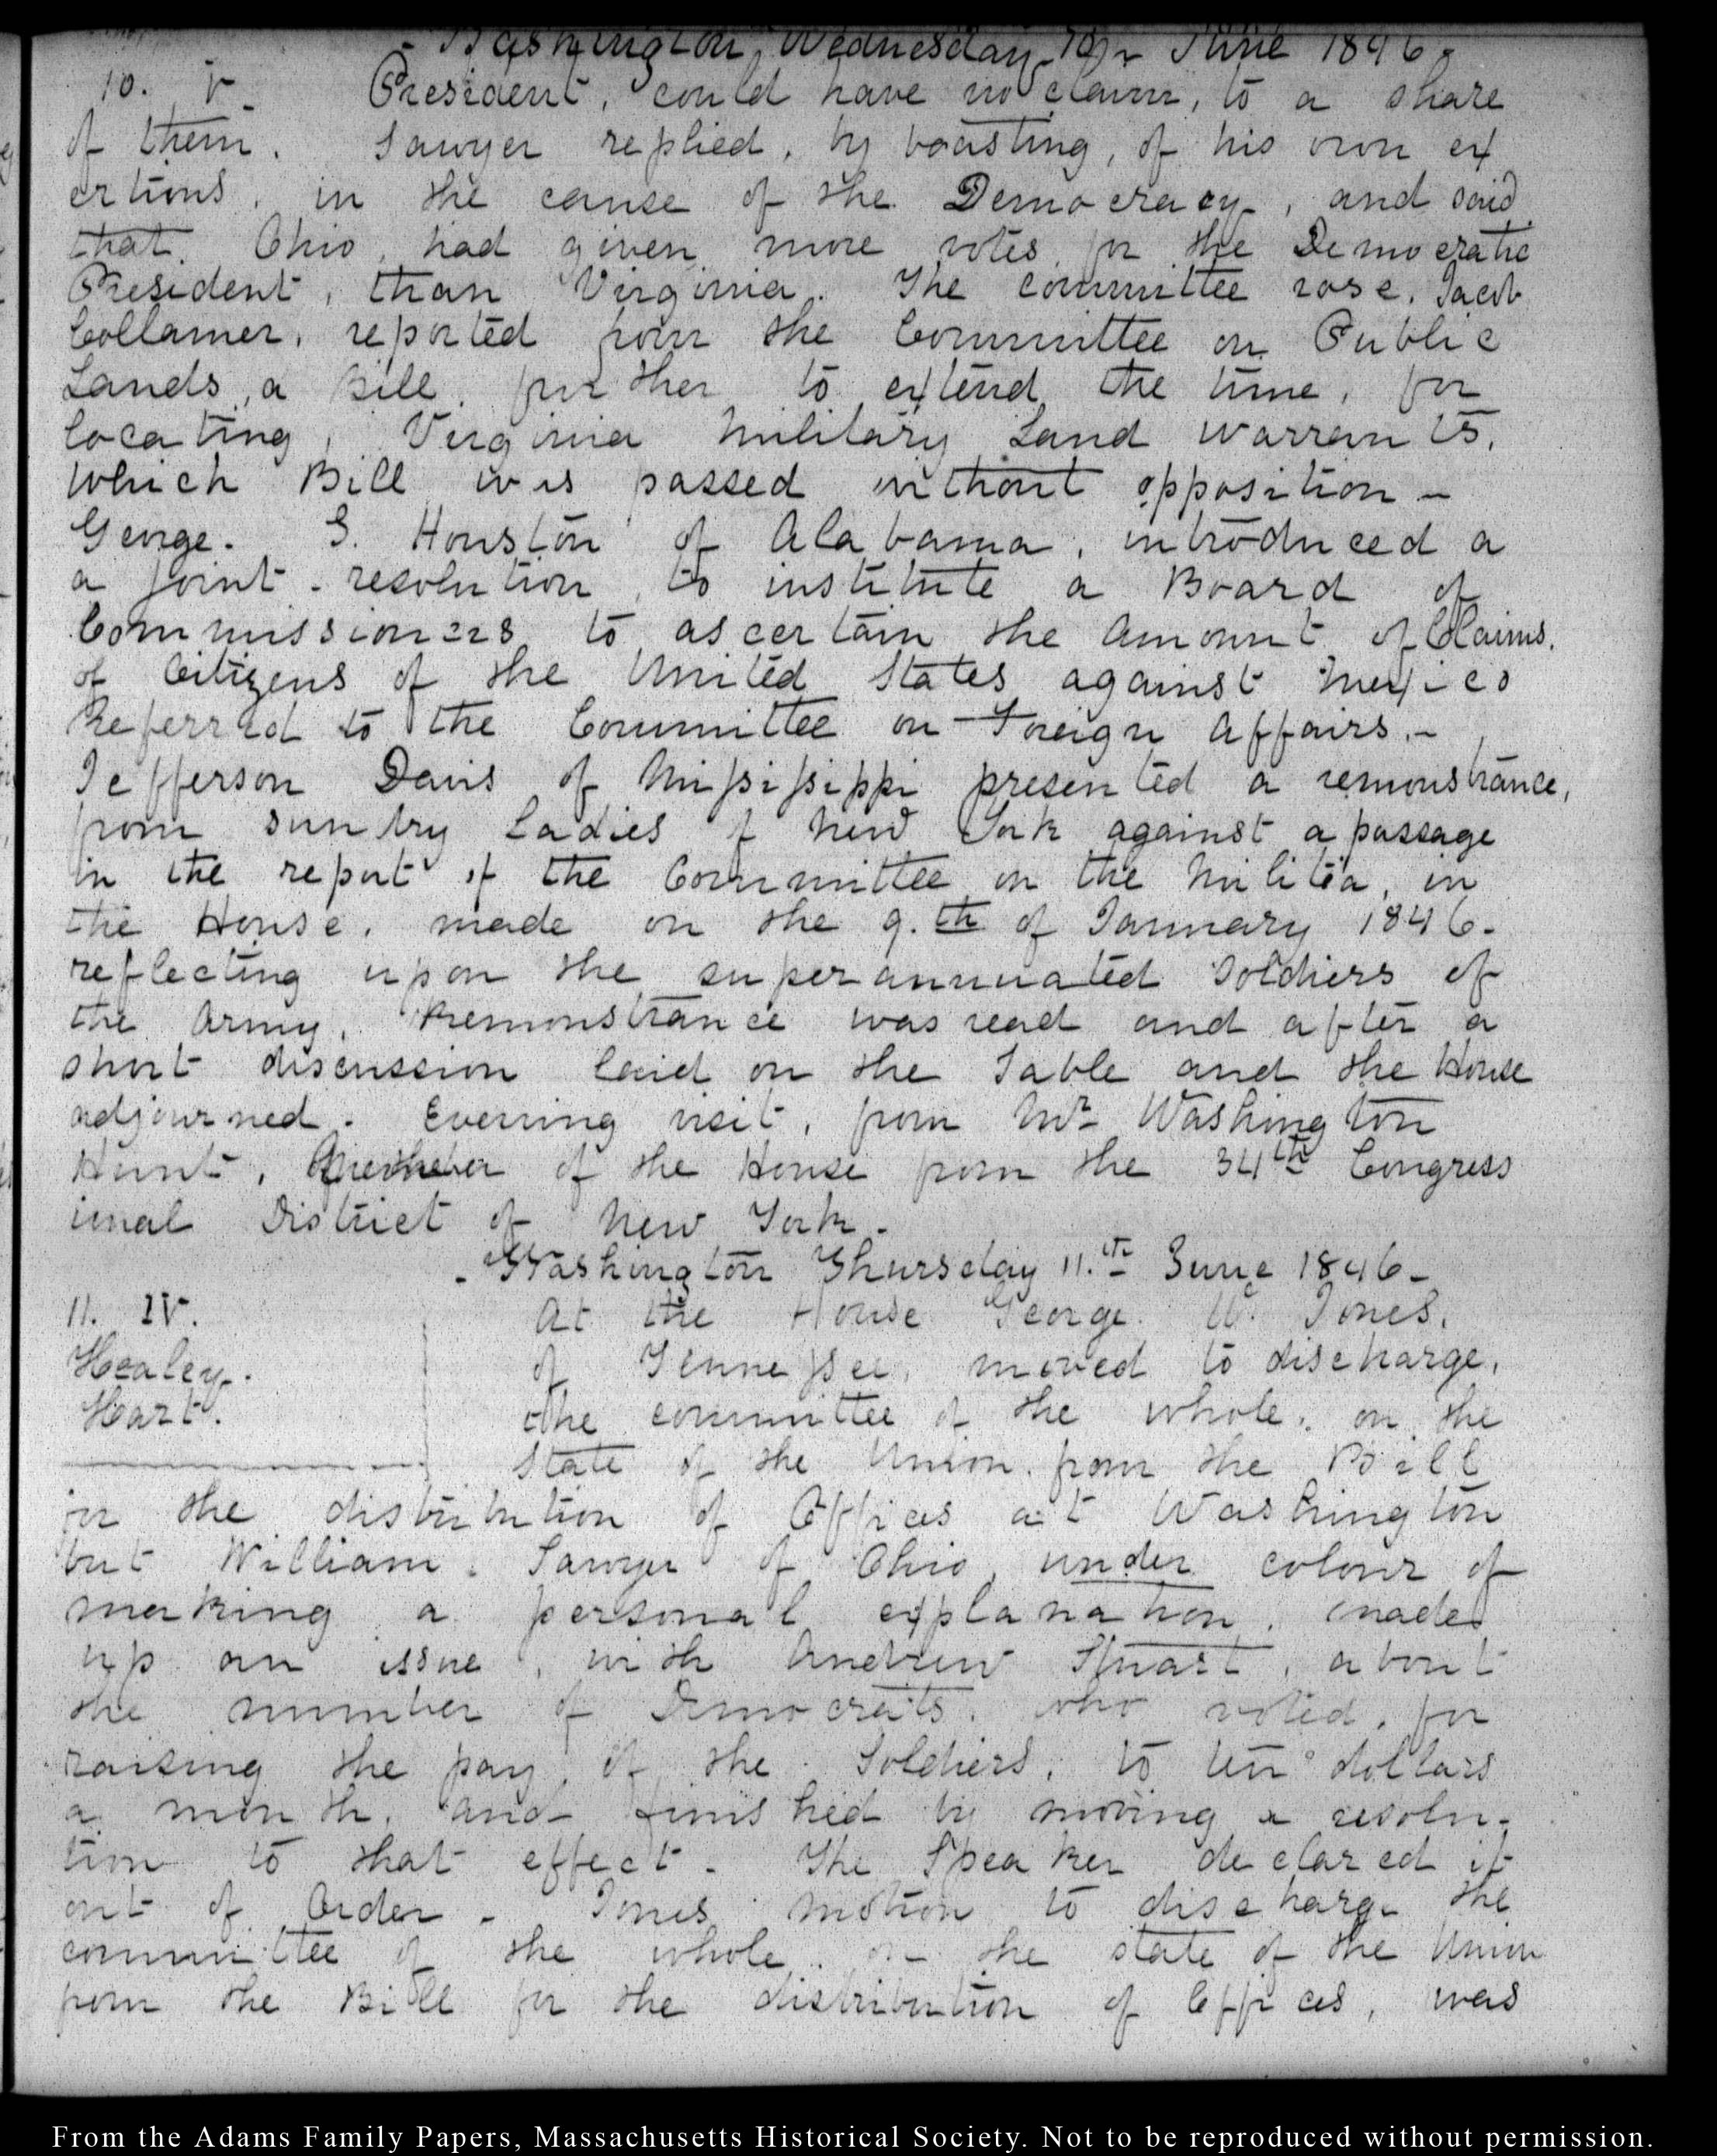 - Washington, Wednesday 10th June 1846 -
10. V. President, could have no claim, to a share
of them. Sawyer replied, by boasting, of his own ex
ertions, in the cause of the Democracy, and said
that, Ohio, had given more votes, for the Democratic
President, than Virginia. The committee rose. Jacob
Collamer, reported from the Committee on Public
Lands, a Bill, further to extend the time, for
locating, Virginia Military Land Warrants,
which Bill was passed without opposition -
George. S. Houston of Alabama, introduced a
a joint-resolution, to institute a Board of
Commissioners, to ascertain the amount of Claims.
of Citizens of the United States against Mexico
Referred to the Committee on Foreign Affairs. -
Jefferson Davis of Missisippi presented a remonstrance,
from sundry Ladies of New York against a passage
in the report of the Committee on the Militia, in
the House, made on the 9.th of January 1846.
reflecting upon the superannuated Soldiers of
the Army. Remonstrance was read and after a
short discussion laid on the Table and the House
adjourned. Evening visit, from Mr Washington
Hunt, Member of the House from the 34th Congress
ional District of New York -
- Washington Thursday 11.th June 1846 -
11. IV. At the House George. W. Jones,
Healey. of Tennessee, moved to discharge,
Hart. the committee of the whole, on the
State of the Union, from the Bill
for the distribution of Offices at Washington
but William. Sawyer of Ohio, under colour of
making a personal explanation, made
up an issue, with Andrew Stuart, about
the number of Democrats, who voted, for
raising the pay, of the Soldiers, to ten dollars
a month, and finished by moving a resolu-
tion to that effect. The Speaker declared it
out of Order - Jones motion to discharge the
committee of the whole on the state of the Union
from the Bill for the distribution of Offices, was
From the Adams Family Papers, Massachusetts Historical Society. Not to be reproduced without permission.